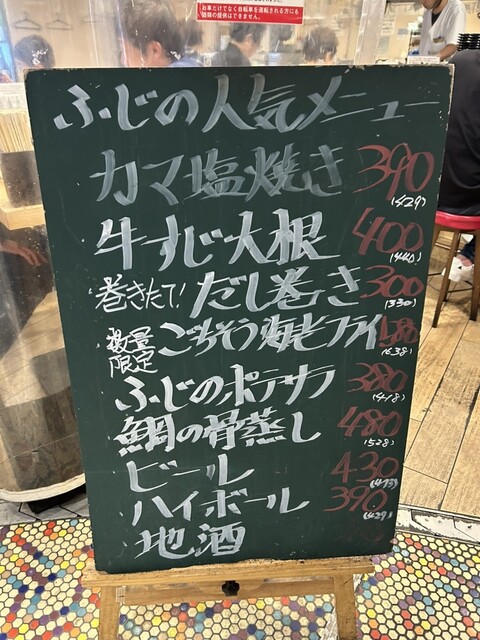 お車だけでなく自転車を運転される方にも
酒類の提供はできません。
ふじの人気メニュー
カマ塩焼き 390
(429)
牛すじ大根 400
(440)
巻きたて! だし巻き 300
(330)
数量限定 ごちそう海老フライ 580
(638)
ふじのポテサラ 380
(418)
鯛の骨蒸し 480
(528)
ビール 430
(473)
ハイボール 390
(429)
地酒